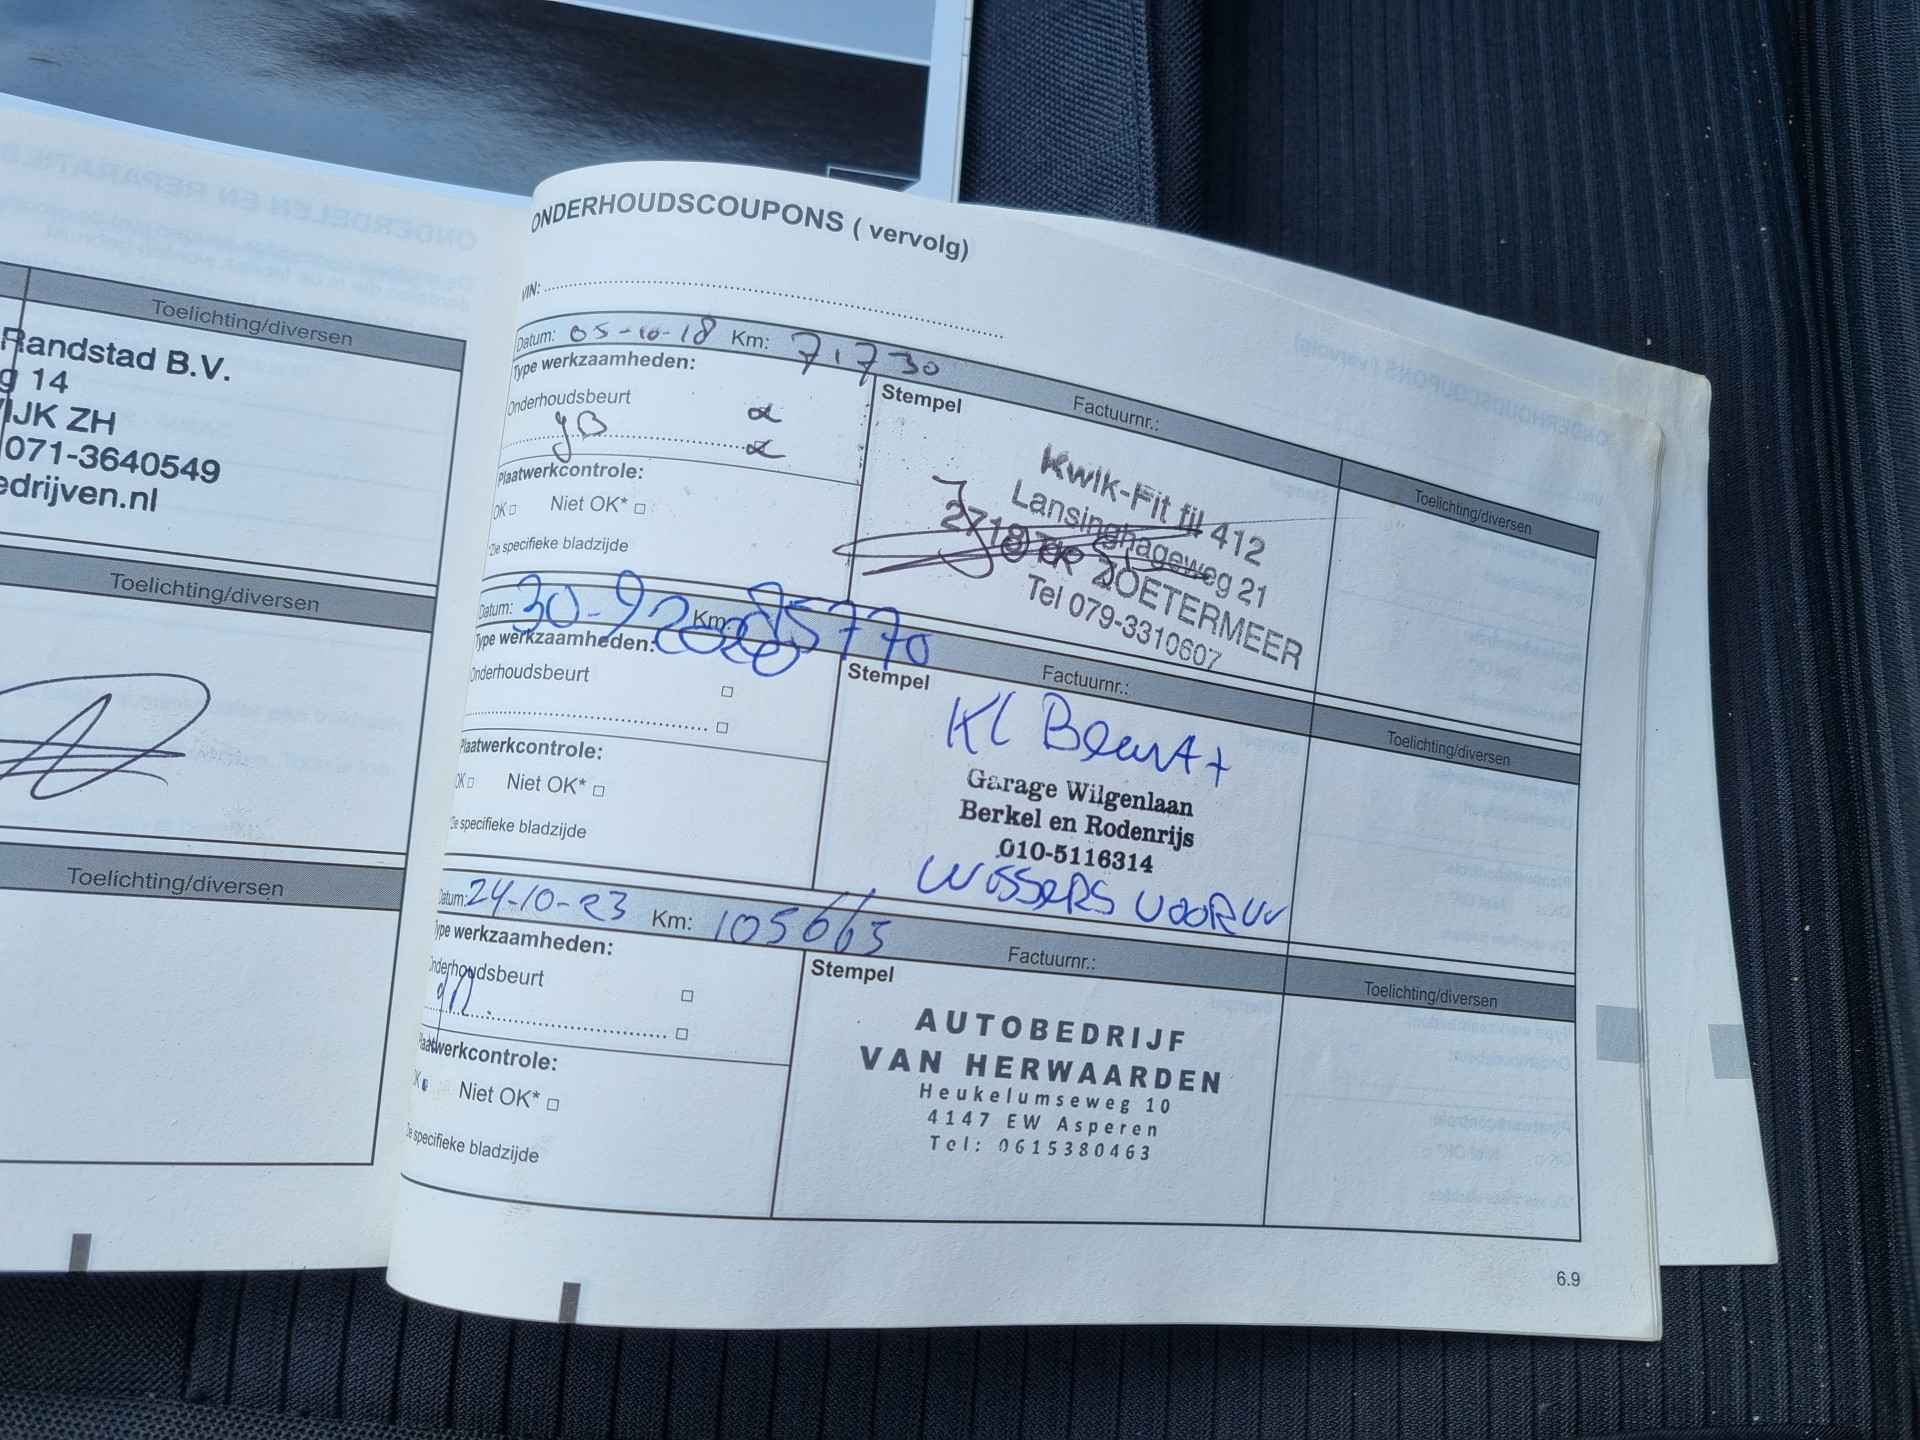 Toelichting/diversen
Randstad B.V.
g 14
IJK ZH
071-3640549
edrijven.nl
Toelichting/diversen
Toelichting/diversen
ONDERHOUDSCOUPONS ( vervolg)
VIN:
Datum: 05-10-18 Km: 71730
Factuurnr.:
Toelichting/diversen
Type werkzaamheden:
Stempel
Onderhoudsbeurt
gB
Plaatwerkcontrole:
OK Niet OK*
*Zie specifieke bladzijde
Kwik-Fit fil 412
Lansinghageweg 21
ZOETERMEER
Tel 079-3310607
Datum: 30-9 2020 Km: 85770
Factuurnr.:
Toelichting/diversen
Type werkzaamheden:
Stempel
Onderhoudsbeurt
Plaatwerkcontrole:
OK Niet OK*
Zie specifieke bladzijde
Kl Beurt +
Garage Wilgenlaan
Berkel en Rodenrijs
010-5116314
WISSERS VOOR
Datum: 24-10-23 Km: 105665
Factuurnr.:
Toelichting/diversen
Type werkzaamheden:
Stempel
Onderhoudsbeurt
Plaatwerkcontrole:
OK Niet OK*
Zie specifieke bladzijde
AUTOBEDRIJF
VAN HERWAARDEN
Heukelumseweg 10
4147 EW Asperen
Tel: 0615380463
6.9